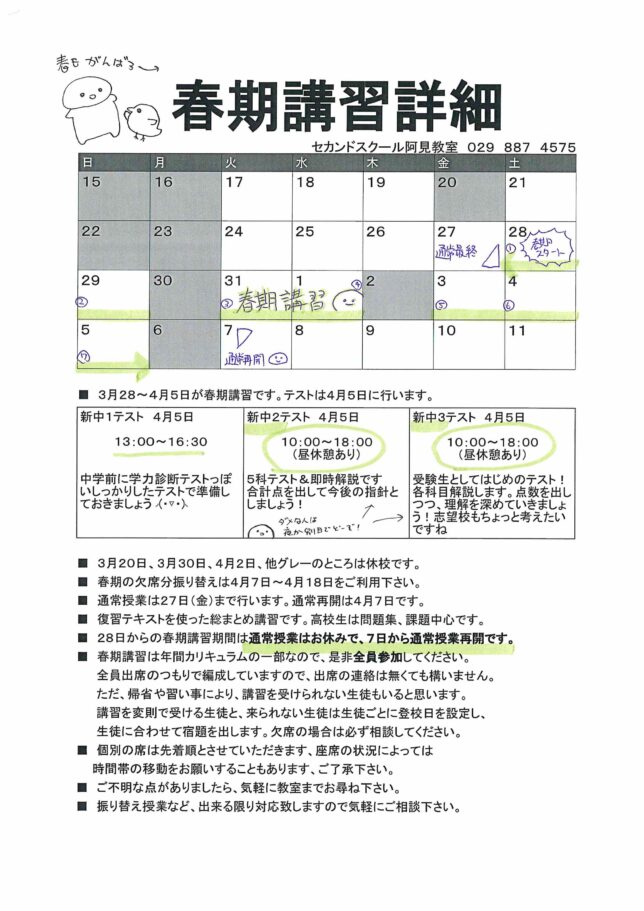 春日 がんばろ〜
春期講習詳細
セカンドスクール阿見教室 029 887 4575
日 月 火 水 木 金 土
15 16 17 18 19 20 21
22 23 24 25 26 27 28
通常最終
① 春期 スタート
29 30 31 1 2 3 4
② ③ 春期講習 ④ ⑤ ⑥
5 6 7 8 9 10 11
⑦ 通常再開
■ 3月28〜4月5日が春期講習です。テストは4月5日に行います。
新中1テスト 4月5日
13:00〜16:30
中学前に学力診断テストっぽ
いしっかりしたテストで準備し
ておきましょう
新中2テスト 4月5日
10:00〜18:00
(昼休憩あり)
5科テスト&即時解説です
合計点を出して今後の指針と
しましょう!
ダメな人は
夜か別日でどーぞ!
新中3テスト 4月5日
10:00〜18:00
(昼休憩あり)
受験生としてはじめのテスト!
各科目解説します。点数を出し
つつ、理解を深めていきましょ
う!志望校もちょっと考えたい
ですね
■ 3月20日、3月30日、4月2日、他グレーのところは休校です。
■ 春期の欠席分振り替えは4月7日〜4月18日をご利用下さい。
■ 通常授業は27日(金)まで行います。通常再開は4月7日です。
■ 復習テキストを使った総まとめ講習です。高校生は問題集、課題中心です。
■ 28日からの春期講習期間は通常授業はお休みで、7日から通常授業再開です。
■ 春期講習は年間カリキュラムの一部なので、是非全員参加してください。
全員出席のつもりで編成していますので、出席の連絡は無くても構いません。
ただ、帰省や習い事により、講習を受けられない生徒もいると思います。
講習を変則で受ける生徒と、来られない生徒は生徒ごとに登校日を設定し、
生徒に合わせて宿題を出します。欠席の場合は必ず相談してください。
■ 個別の席は先着順とさせていただきます、座席の状況によっては
時間帯の移動をお願いすることもあります、ご了承下さい。
■ ご不明な点がありましたら、気軽に教室までお尋ね下さい。
■ 振り替え授業など、出来る限り対応致しますので気軽にご相談下さい。